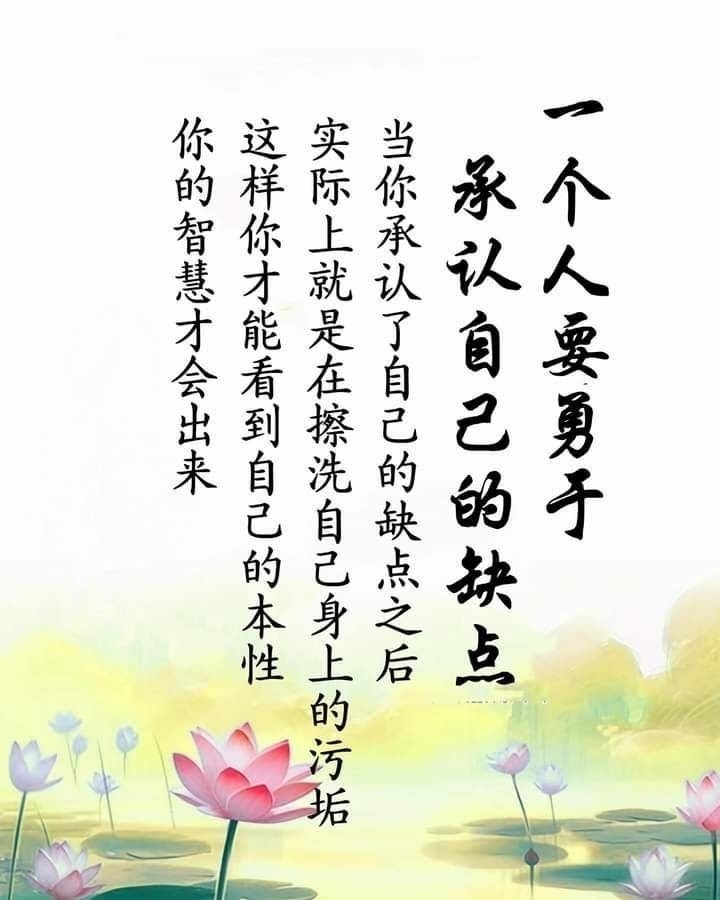 一个人要勇于
承认自己的缺点
当你承认了自己的缺点之后
实际上就是在擦洗自己身上的污垢
这样你才能看到自己的本性
你的智慧才会出来